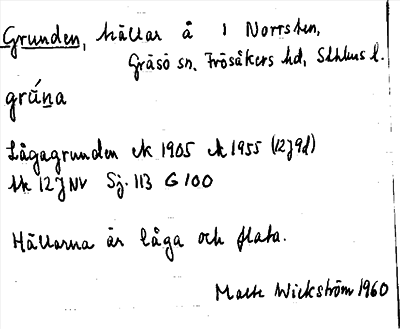 Grunden, hällar å 1 Norrsten,
Gräsö sn, Frösåkers hd, Sthlms l.
grúna
Lågagrunden ek 1905 ek 1955 (12J9d)
tk 12J NV Sj. 113 G 100
Hällarna är låga och flata.
Malte Wickström 1960